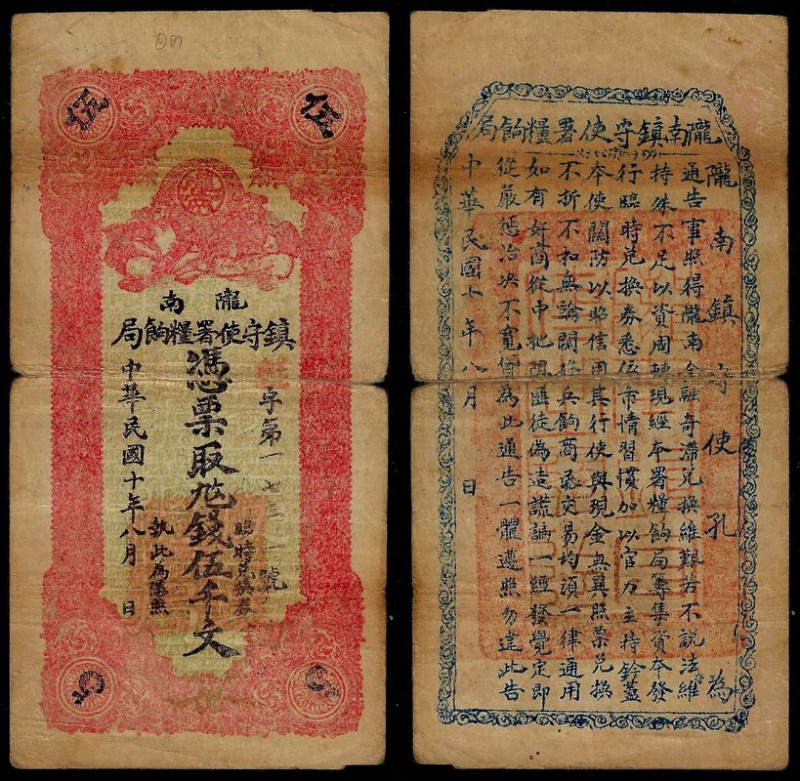 伍
伍
隴南
鎮守使署糧餉局
字第一七三一號
憑票取尨錢伍千文
臨時兌換券
執此為憑照
中華民國十年八月 日
5
5
隴南鎮守使署糧餉局
隴南鎮守使孔為
通告事照得隴南金融奇滯兌換維艱若不說法維
持殊不足以資周轉現經本署糧餉局籌集資本發
行臨時兌換券悉依市情習慣加以官力主持鈐蓋
本使關防以昭信用其行使與現金無異照票兌換
不折不扣無論關發兵餉商民交易均須一律通用
如有奸商從中把閉匪徒偽造謊騙一經發覺定即
從嚴懲治决不寬貸為此通告一體遵照勿違此告
中華民國十年八月 日